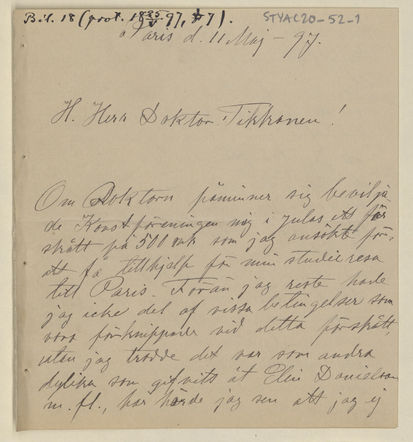 Bil. 18 (prot. 18 25/V 97, § 7). STYAC20-52-1
Paris d. 11 Maj - 97.
H. Herr Doktor Tikkanen!
Om Doktorn påminner sig bevilja-
de Konstföreningen mig i julas ett för-
skått på 500 mk som jag ansökte för
att få till hjelp för min studieresa
till Paris. Förän jag reste hade
jag icke del af vissa betingelser som
voro förknippade vid detta förskått,
utan jag trodde det var som andra
dylika som gifvits åt Elin Danielson
m. fl., har hörde jag sen att jag ej